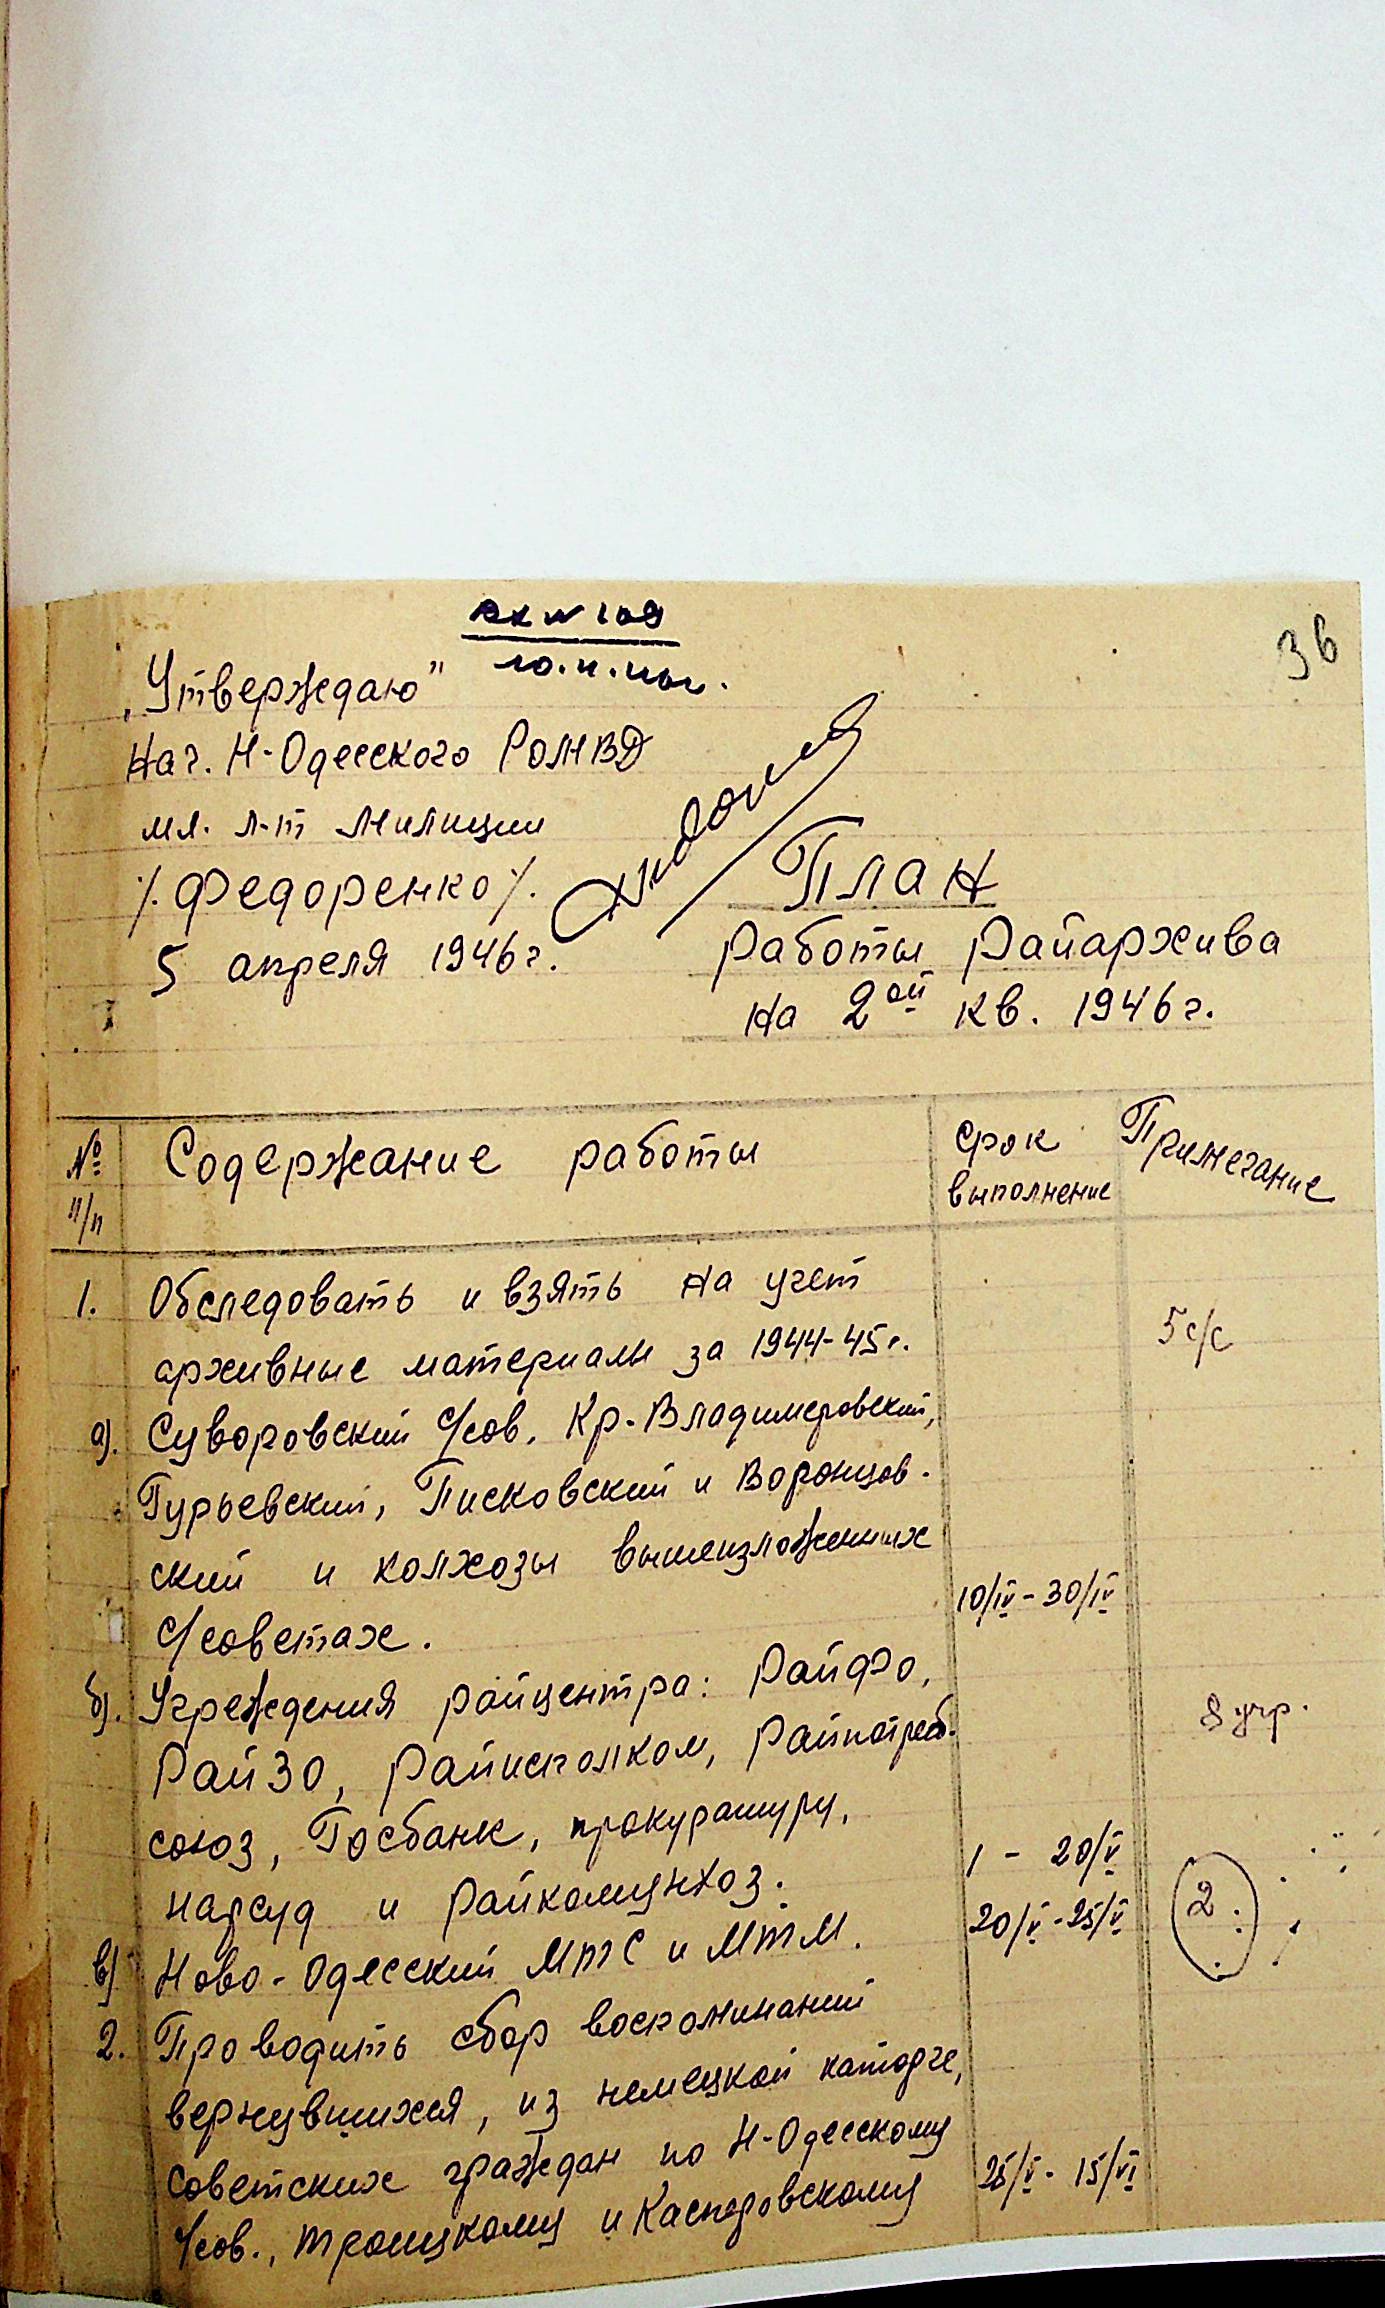 вх № 109
36
„Утверждаю"
Нач. Н-Одесского РОМВД
мл. л-т милиции
/.Федоренко/.
5 апреля 1946 г.
План
работы Райархива
на 2ой кв. 1946 г.
№ п/п
Содержание работы
срок выполнение
Примечание
1. Обследовать и взять на учет
архивные материалы за 1944-45 г.
5 с/с
а). Суворовский с/сов, Кр-Владимеровский,
Гурьевский, Писковский и Воронцов-
ский и колхозы вышеизложенных
с/советах.
10/IV - 30/IV
б). Учреждения райцентра: РайФо,
РайЗО, Райисполком, Райпотреб.
8 учр.
союз, Госбанк, прокуратуру,
нарсуд и Райкомунхоз.
1 - 20/V
в) Ново-Одесский МТС и МТМ.
20/V - 25/V
2.
2. Проводить сбор воспоминаний
вернувшихся, из немецкой каторге,
советских граждан по Н-Одесскому
с/сов., Троицкому и Касперовскому
25/V - 15/VI